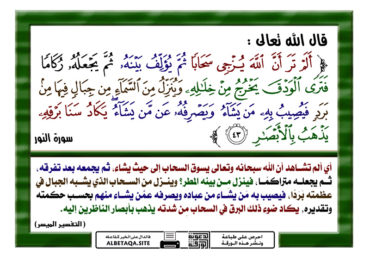 قال الله تعالى :
﴿ أَلَمْ تَرَ أَنَّ ٱللَّهَ يُزْجِى سَحَابًا ثُمَّ يُؤَلِّفُ بَيْنَهُۥ ثُمَّ يَجْعَلُهُۥ رُكَامًا
فَتَرَى ٱلْوَدْقَ يَخْرُجُ مِنْ خِلَـٰلِهِۦ وَيُنَزِّلُ مِنَ ٱلسَّمَآءِ مِن جِبَالٍ فِيهَا مِنۢ
بَرَدٍ فَيُصِيبُ بِهِۦ مَن يَشَآءُ وَيَصْرِفُهُۥ عَن مَّن يَشَآءُ يَكَادُ سَنَا بَرْقِهِۦ
يَذْهَبُ بِٱلْأَبْصَـٰرِ ٤٣ ﴾
سورة النور
أي ألم تشاهد أن الله سبحانه وتعالى يسوق السحاب إلى حيث يشاء، ثم يجمعه بعد تفرقه،
ثم يجعله متراكمًا، فينزل من بينه المطر؟ وينزل من السحاب الذي يشبه الجبال في
عظمته بردًا، فيصيب به من يشاء من عباده ويصرفه عمَّن يشاء منهم بحسب حكمته
وتقديره، يكاد ضوء ذلك البرق في السحاب من شدته يذهب بأبصار الناظرين إليه.
( التفسير الميسر )
احرص على طباعة
ونشر هذه الورقة
فالدال على الخير كفاعله
ALBETAQA.SITE